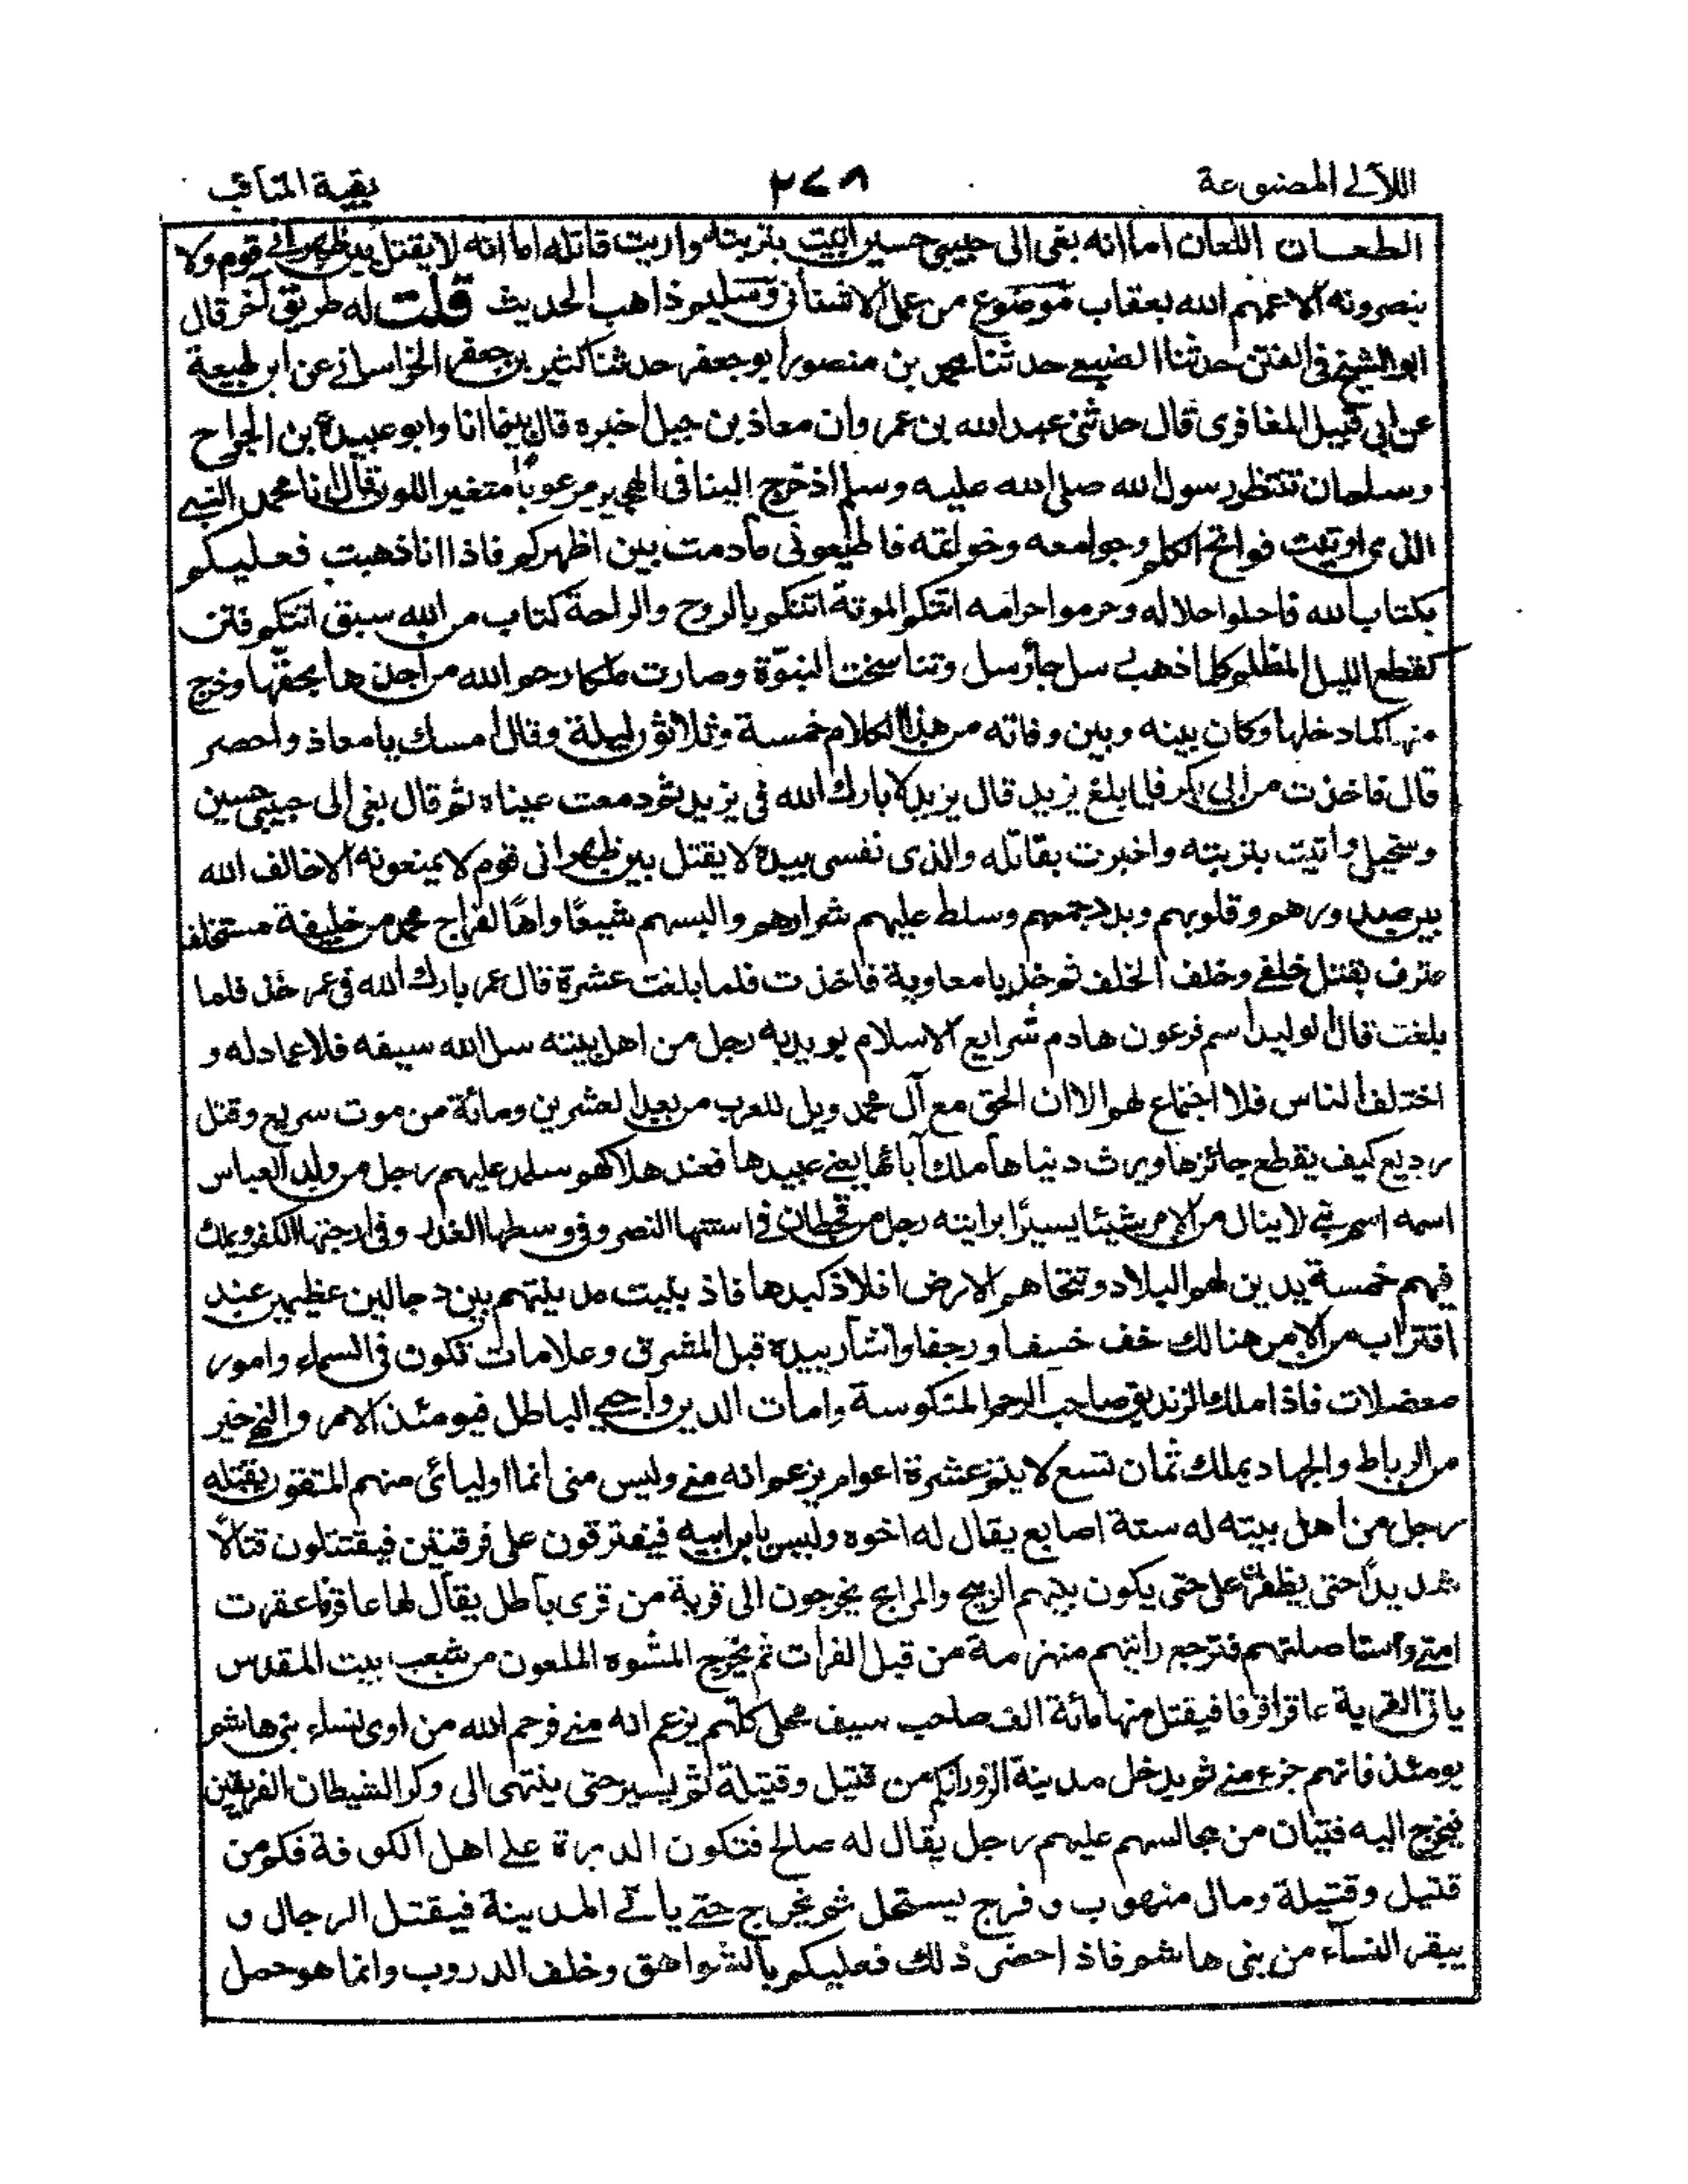 اللآلى المصنوعة
٢٤٨
بقية المناقب
الطعان اللعان اما انه نعى الى حبيبى حسين اتيت بتربته واريت قاتله اما انه لا يقتل بين ظهرانے قوم ولا
ينصرونه الا عمهم الله بعقاب موضوع من عمل الاشنانى وسليم ذاهب الحديث قلت له طريق آخر قال
ابو الشيخ فى الفتن حدثنا الضبيع حدثنا محمد بن منصور ابو جعفر حدثنا كثير بن جعفر الخراسانے عن ابن لهيعة
عن ابى قبيل المغافرى قال حدثنى عبد الله بن عمر وان معاذ بن جبل اخبره قال بينما انا وابو عبيدة بن الجراح
وسلمان ننتظر رسول الله صلى الله عليه وسلم اذ خرج الينا فى الهجير مرعوبا متغير اللون فقال انا محمد النبے
الذى اوتيت فواتح الكلم وجوامعه وخواتمه فاطيعونى مادمت بين اظهركم فاذا انا ذهبت فعليكم
بكتاب الله فاحلوا حلاله وحرموا حرامه اتتكم الموتة اتتكم بالروح والراحة كتاب من الله سبق اتتكم فتن
كقطع الليل المظلم كلما ذهب رسل جاء رسل وتناسخت النبوّة وصارت ملكا رحم الله من اخذها بحقها وخرج
منها كما دخلها وكان بينه وبين وفاته من هذا الكلام خمسة وثلاثون ليلة وقال امسك يا معاذ واحصر
قال فاخذت من ابى بكر فلما بلغ يزيد قال يزيد لا بارك الله فى يزيد ثم دمعت عيناه ثم قال نعى الى حبيبى حسين
وسخيلى واتيت بتربته واخبرت بقاتله والذى نفسى بيده لا يقتل بين ظهرانى قوم لا يمنعونه الا خالف الله
بين صدورهم وقلوبهم وبدد جمعهم وسلط عليهم شرارهم والبسهم شيعًا واهًا لفراج محمد من خليفة مستخلف
مترف يقتل خلفے وخلف الخلف ثم خذ يا معاوية فاخذت فلما بلغت عشرة قال عمر بارك الله فى عمر خذ فلما
بلغت قال الوليد اسم فرعون هادم شرايع الاسلام يوء بدمه رجل من اهل بيته سل الله سيفه فلا غمادله و
اختلف الناس فلا اجتماع لهم الا ان الحق مع آل محمد ويل للعرب من بعد العشرين ومائة من موت سريع وقتل
رديع كيف يقطع جائزها ويرث دنياها ملك آبائها يعنے عبيدها فعند هلاكهم سلد عليهم رجل من ولد العباس
اسمه اسم نبے لا ينال من الامر شيئا يسيرًا برايته رجل من قحطان فى استتها النصر وفى وسطها الغدر وفى ازجتها الكفر ويملك
فيهم خمسة يدين لهم البلاد وتنخاهم الارض افلاذ كبدها فاذ بنيت مدينتهم بين دجالين عظيمين عند
اقتراب من الامر هنالك خف خسفا ورجفا واشار بيده قبل المشرق وعلامات تكون فى السماء وامور
معضلات فاذا ملك الزنديق صاحب الرحم المنكوسة وامات الدين واحيے الباطل فيومئذ الامر والنهے خير
من الرباط والجهاد يملك ثمان تسع لا يتم عشرة اعوام يزعم انه منے وليس منى انما اوليائى منهم المتقون يقتله
رجل من اهل بيته له ستة اصابع يقال له اخوه وليس بابن ابيه فيفترقون على فرقتين فيقتتلون قتالًا
شديدًا حتى يظفر على حتى يكون بينهم الريح والمراج يخرجون الى قرية من قرى بابل يقال لها عاقرقفا عقرت
امتے واستاصلتهم فترجع رايتهم منهزمة من قبل الفرات ثم يخرج المشوه الملعون من شعب بيت المقدس
ياتى القرية عاقرقفا فيقتل منها مائة الف صاحب سيف محلى كلهم يزعم انه منے فرحم الله من اوى نساء بنى هاشم
يومئذ فانهم جزء منے ثم يدخل مدينة الزوراء كم من قتيل وقتيلة ثم يسير حتى ينتهى الى وكر الشيطان الفريقين
فيخرج اليه فتيان من مجالسهم عليهم رجل يقال له صالح فتكون الدبرة على اهل الكوفة فكم من
قتيل وقتيلة ومال منهوب وفرج يستحل ثم يخرج حتے ياتى المدينة فيقتل الرجال و
يبقر النساء من بنى هاشم فاذا احضى ذلك فعليكم بالشواهق وخلف الدروب وانما هو حمل